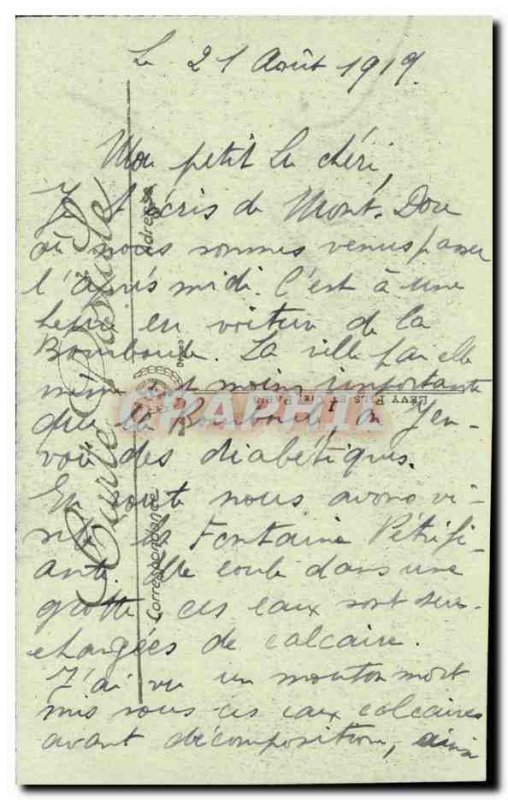 Le 21 Août 1919.
Mon petit chéri,
Je t'écris de Mont-Dore
où nous sommes venus passer
l'après midi. C'est à une
heure en voiture de la
Bourboule. La ville par elle
même est moins importante
que la Bourboule on y en-
voie des diabétiques.
En route nous avons vi-
sité la Fontaine Pétrifi-
ante. Elle coule dans une
grotte ces eaux sont sur-
chargées de calcaire.
J'ai vu un mouton mort
mis sous ces eaux calcaires
avant décomposition, ainsi
Carte Postale
Adresse
Correspondance
LEVY FILS ET Cie PARIS